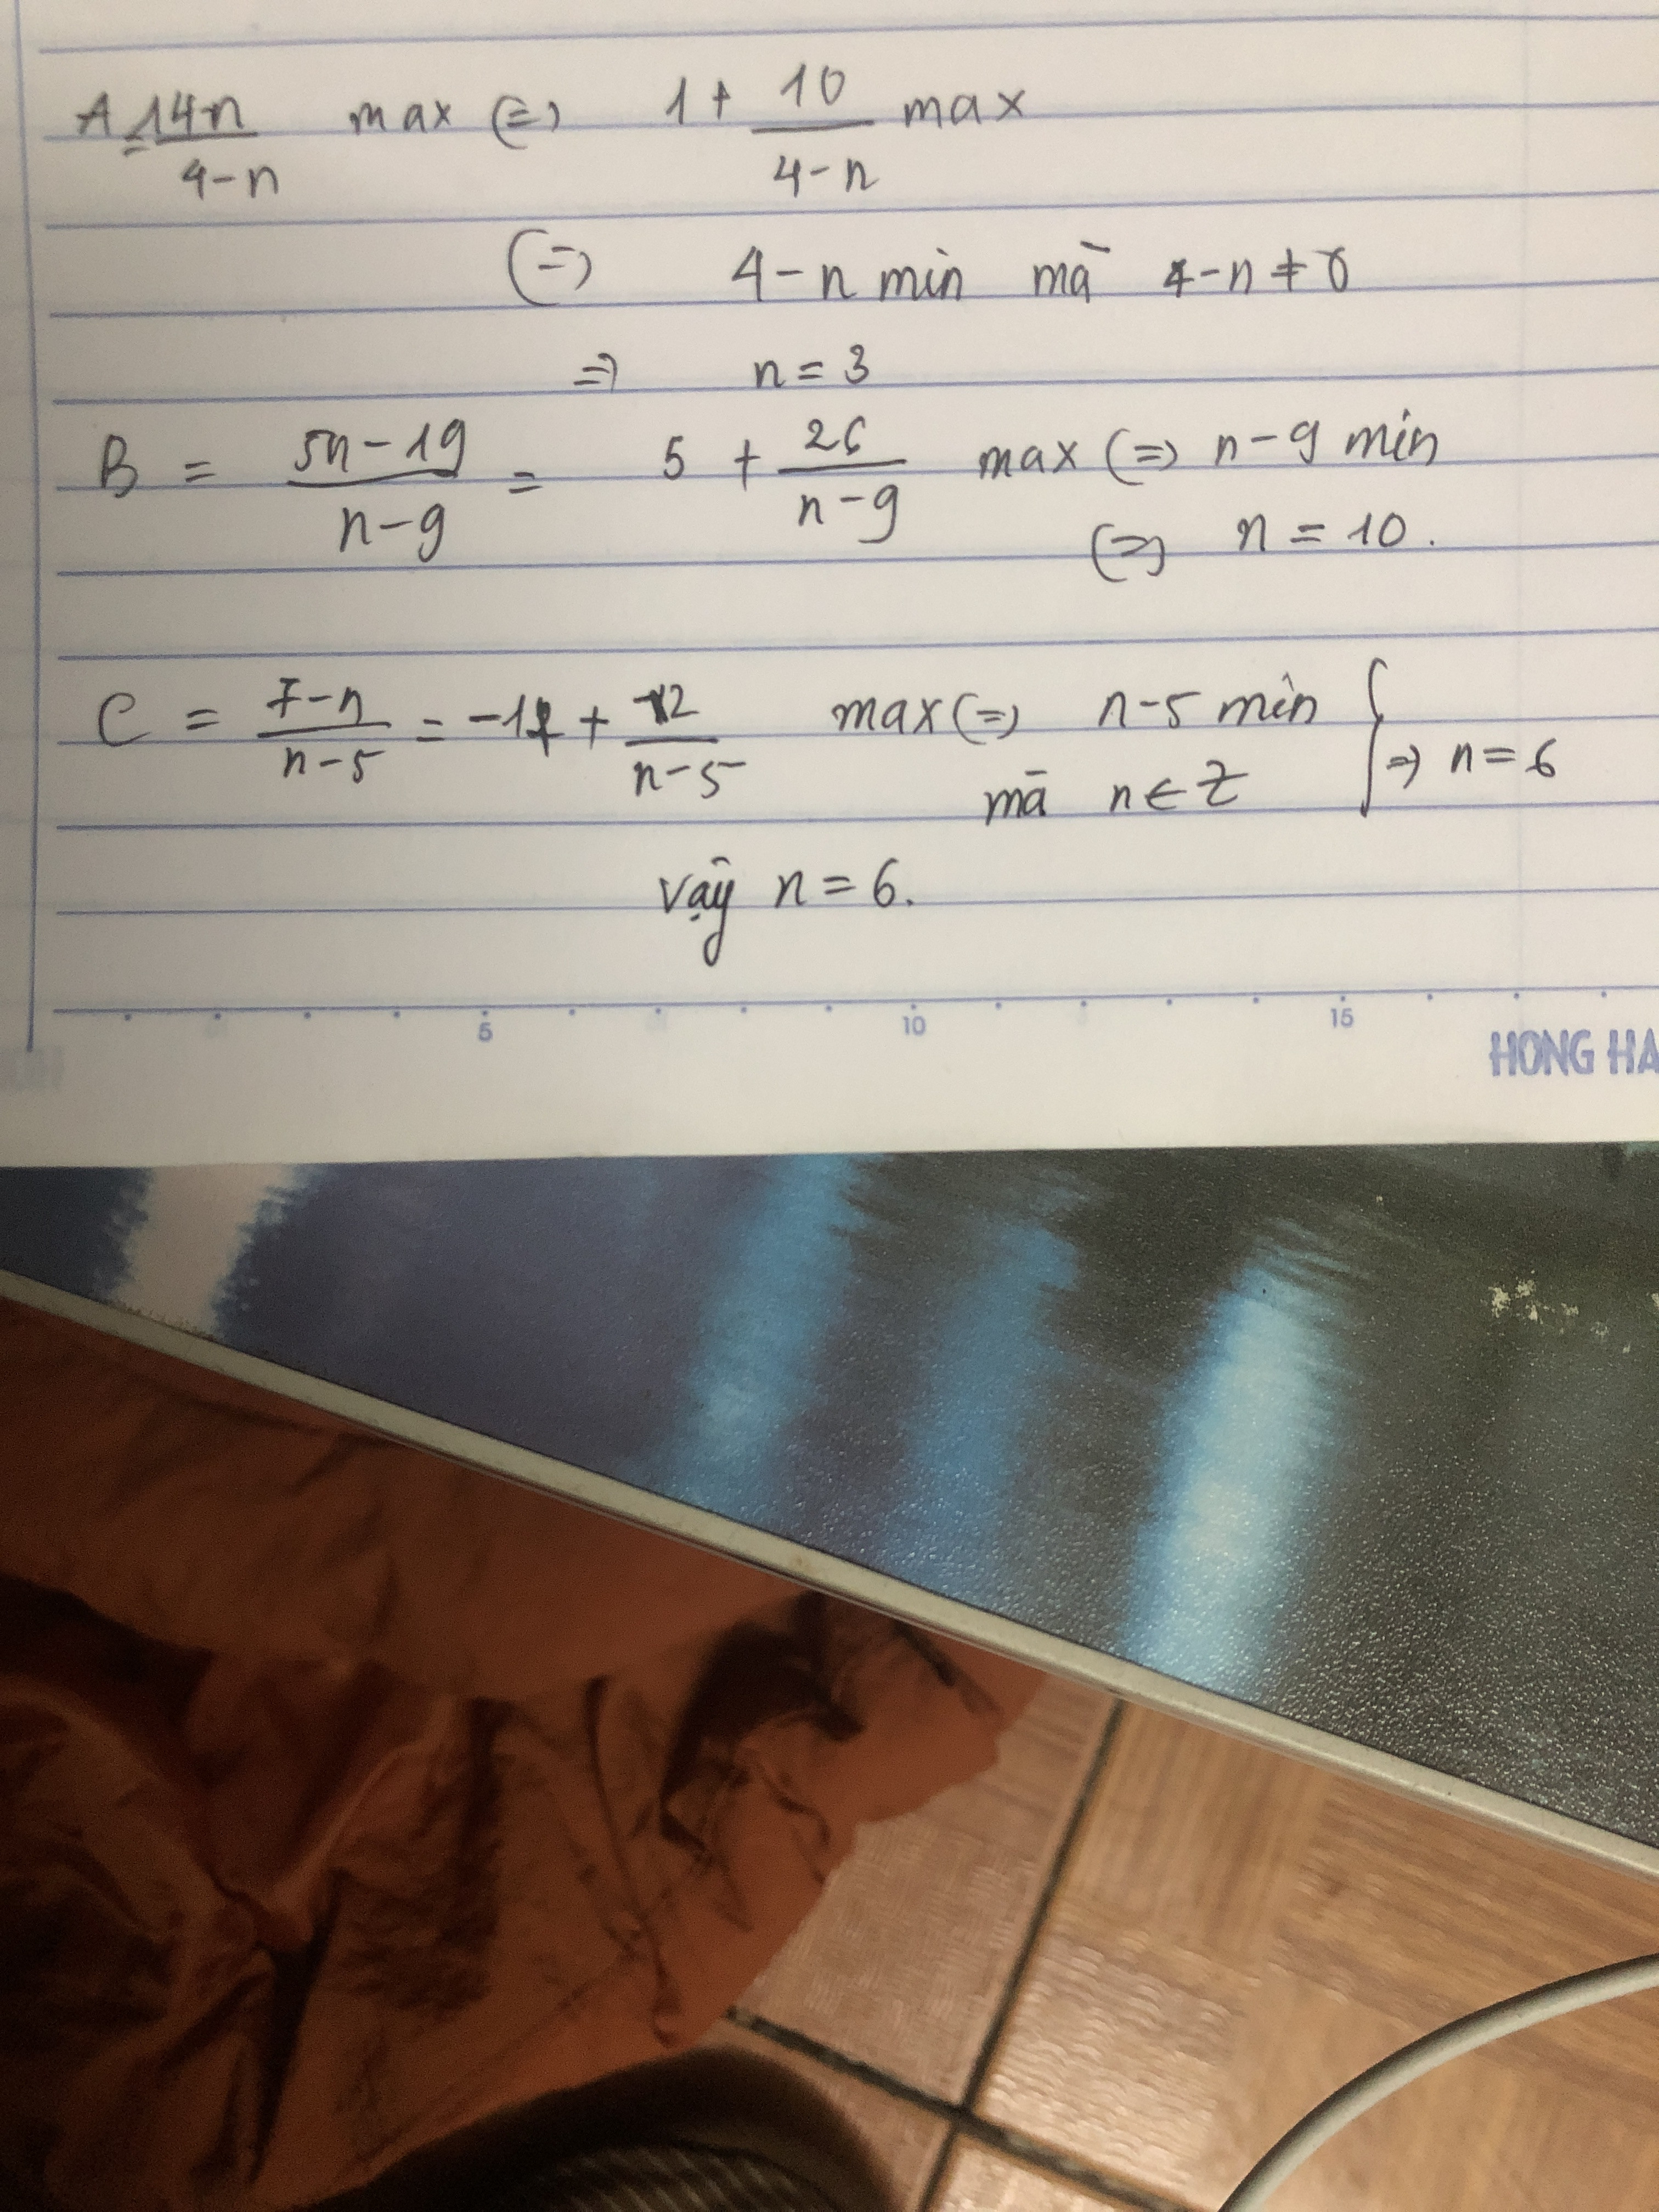 A = 14n / 4-n max (=) 1 + 10 / 4-n max
(=) 4-n min mà 4-n ≠ 0
=) n = 3
B = 5n-19 / n-9 = 5 + 26 / n-9 max (=) n-9 min
(=) n = 10.
C = 7-n / n-5 = -1 + 2 / n-5 max (=) n-5 min
mà n ∈ Z } =) n = 6
vậy n = 6.
5 10 15
HONG HA